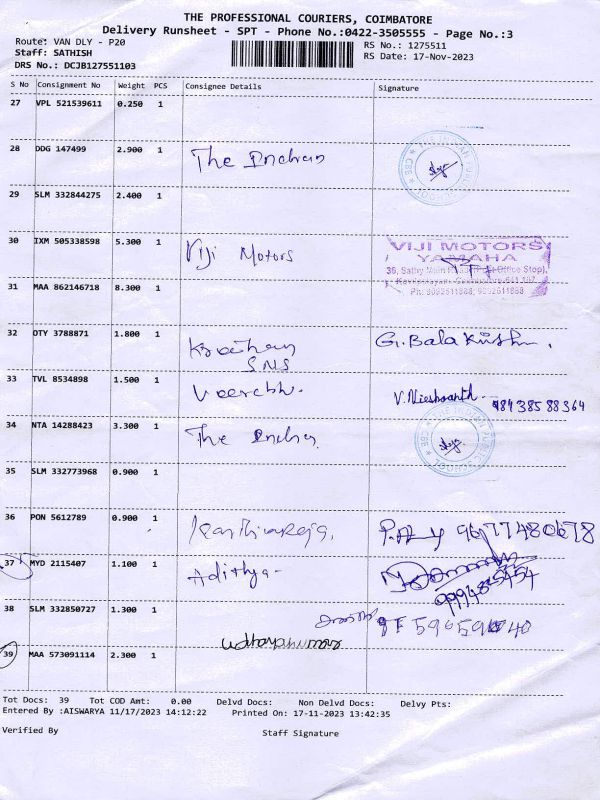 THE PROFESSIONAL COURIERS, COIMBATORE
Delivery Runsheet - SPT - Phone No.:0422-3505555 - Page No.:3
Route: VAN DLY - P20
RS No.: 1275511
Staff: SATHISH
RS Date: 17-Nov-2023
DRS No.: DCJB127551103
S No Consignment No Weight PCS Consignee Details Signature
27 VPL 521539611 0.250 1
28 DDG 147499 2.900 1 The
29 SLM 332844275 2.400 1
30 IXM 505338598 5.300 1 Viji Motors
VIJI MOTORS
YAMAHA
36, Sathy Main Office Stop),
31 MAA 862146718 8.300 1
32 DTY 3788871 1.800 1 G. Bala
SNS
33 TVL 8534898 1.500 1 V. 8438588364
34 NTA 14288423 3.300 1 The
35 SLM 332773968 0.900 1
36 PON 5612789 0.900 1 9677480678
37 MYD 2115407 1.100 1 Adithya
38 SLM 332850727 1.300 1
Udhayakumar
39 MAA 573091114 2.300 1
Tot Docs: 39 Tot COD Amt: 0.00 Delvd Docs: Non Delvd Docs: Delvy Pts:
Entered By :AISWARYA 11/17/2023 14:12:22 Printed On: 17-11-2023 13:42:35
Verified By Staff Signature